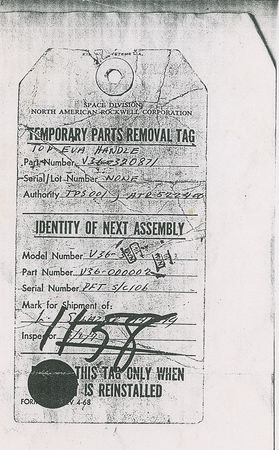 SPACE DIVISION
NORTH AMERICAN ROCKWELL CORPORATION
TEMPORARY PARTS REMOVAL TAG
TOP EVA HANDLE
Part Number V36-320871
Serial/Lot Number NONE
Authority TPS001
IDENTITY OF NEXT ASSEMBLY
Model Number V36-
Part Number V36-000002
Serial Number PFT S/C106
Mark for Shipment of:
Inspector
1158
THIS TAG ONLY WHEN
IS REINSTALLED
4-68